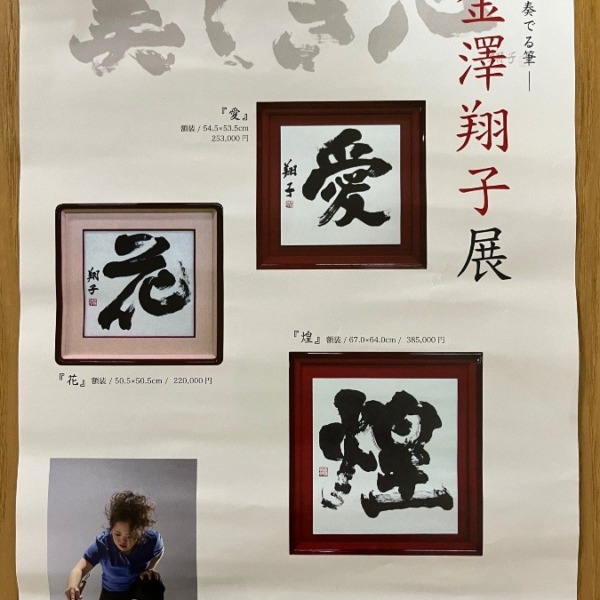 奏でる筆―
金澤翔子展
『愛』
額装 / 54.5×53.5cm
253,000円
愛
翔子
花
翔子
『花』 額装 / 50.5×50.5cm / 220,000円
『煌』 額装 / 67.0×64.0cm / 385,000円
煌